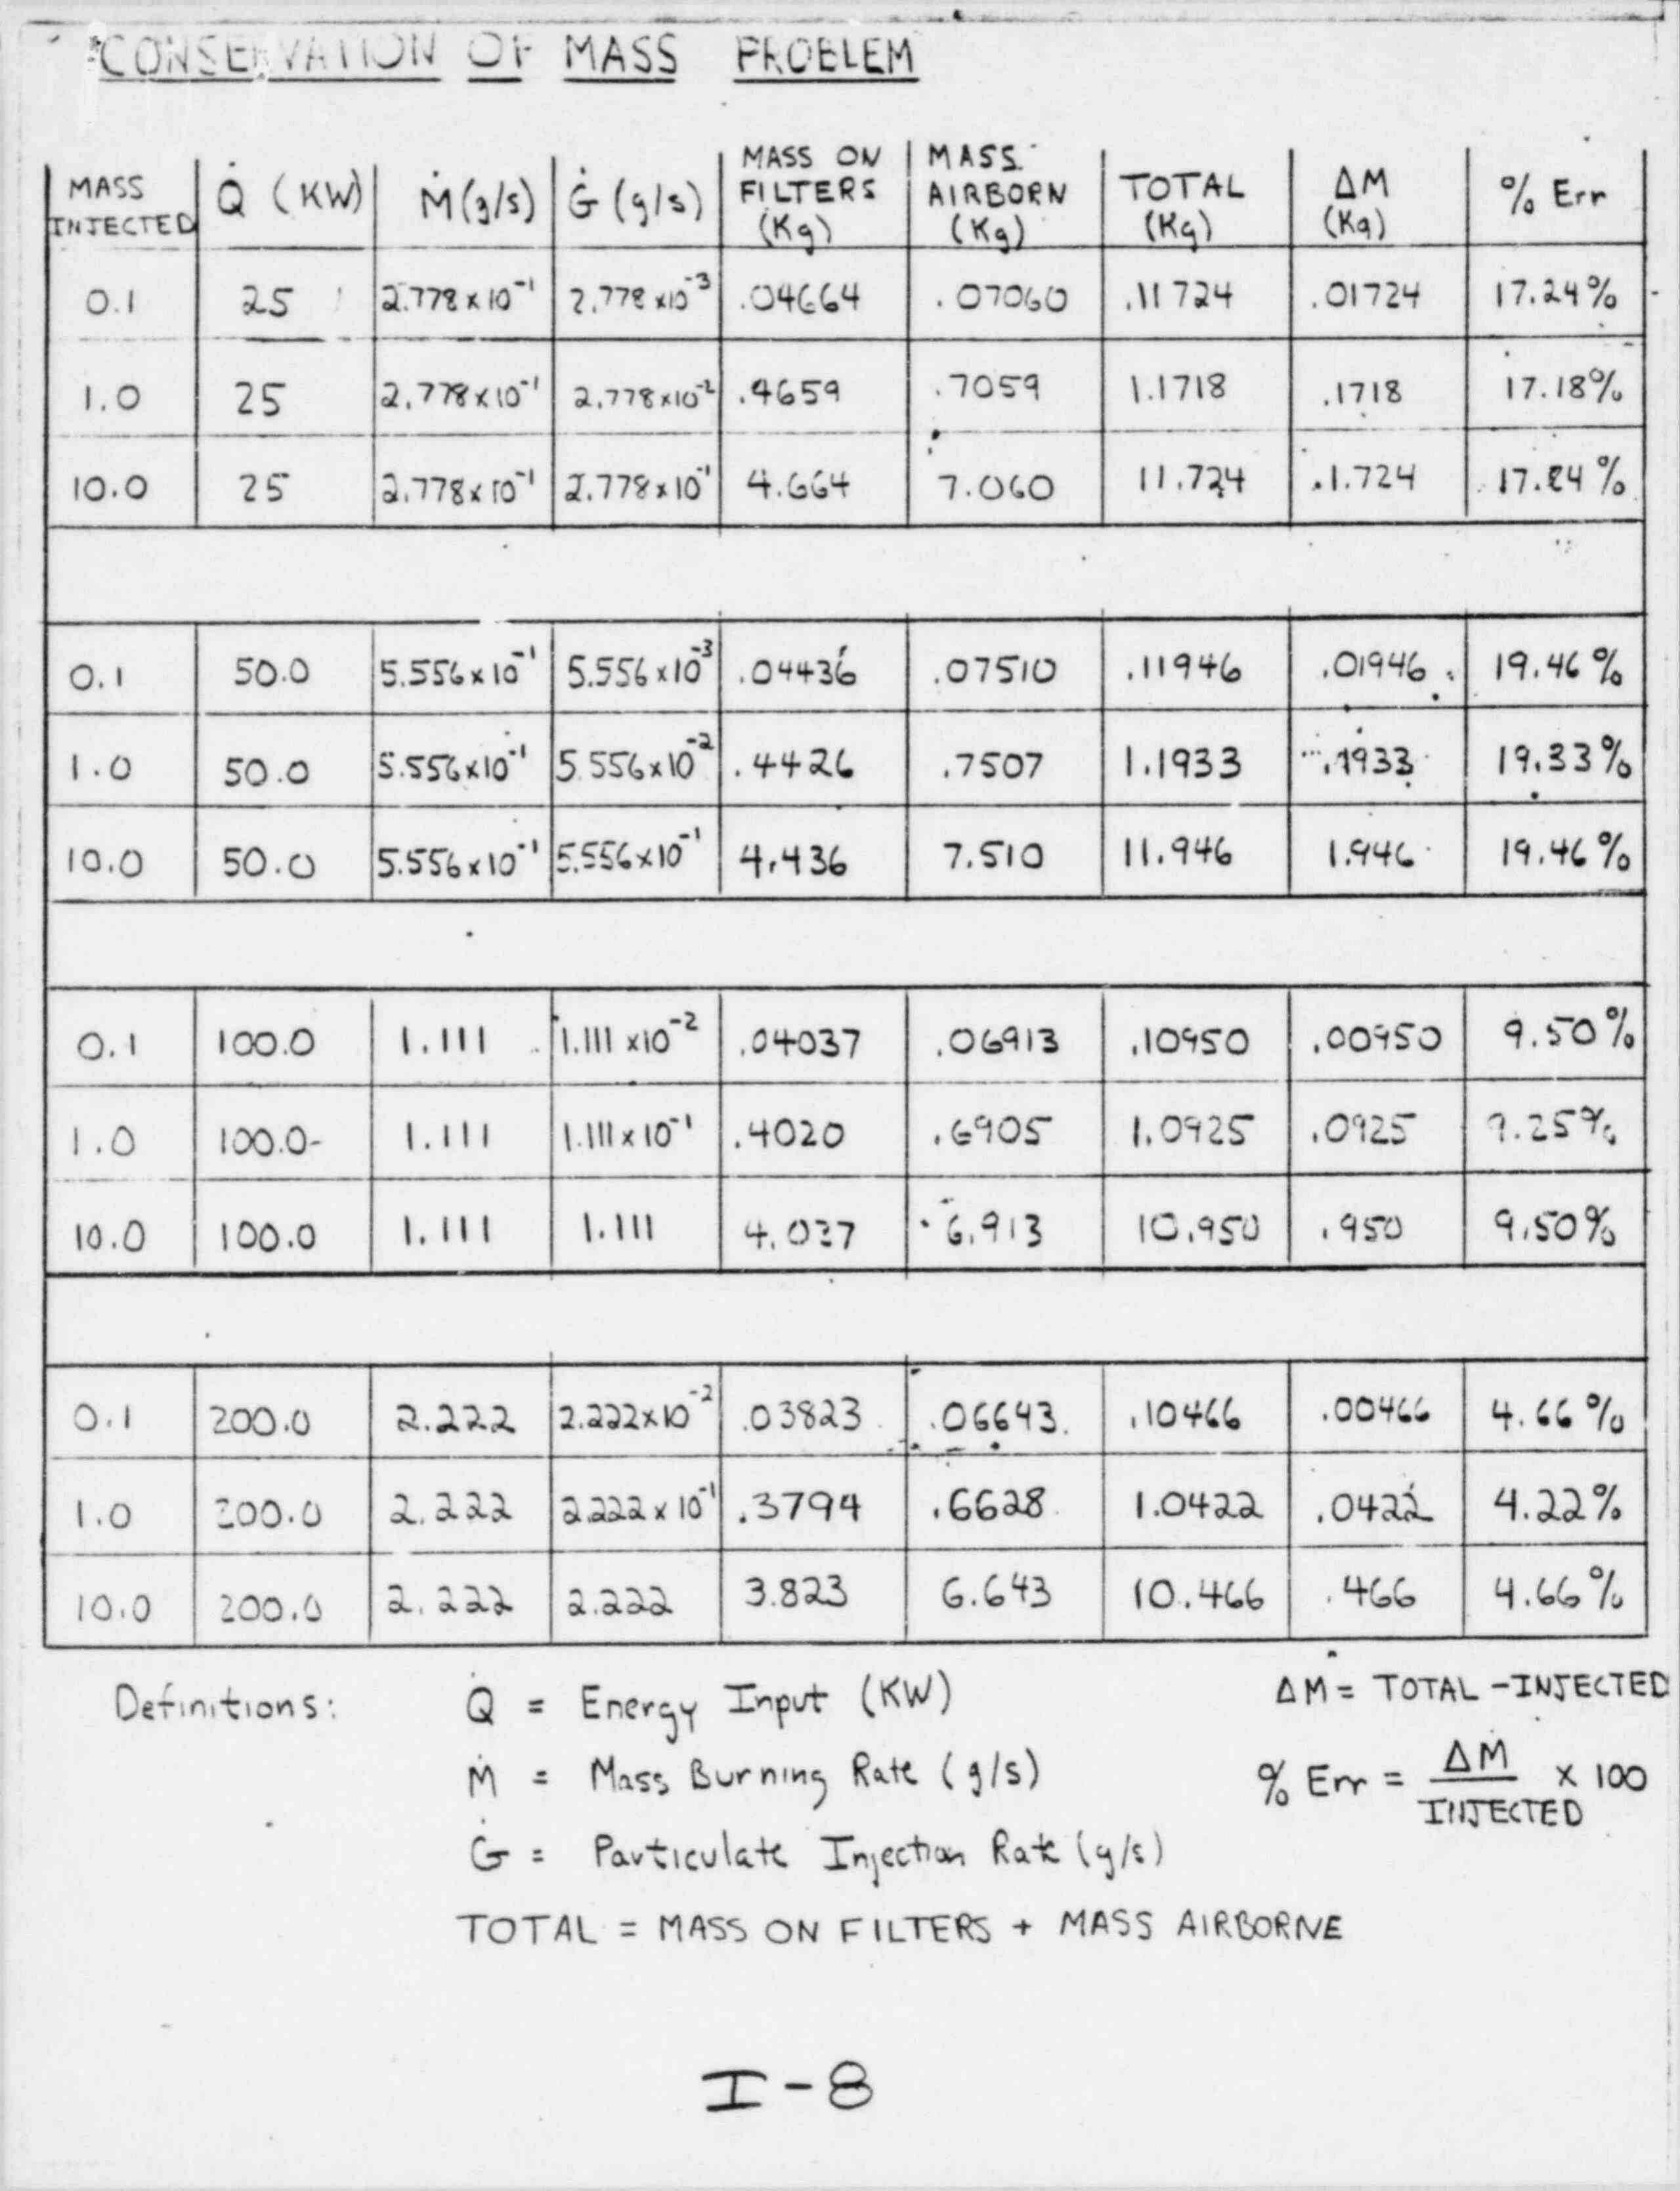 CONSERVATION OF MASS PROBLEM
MASS INJECTED | Q̇ (KW) | Ṁ (g/s) | Ġ (g/s) | MASS ON FILTERS (Kg) | MASS AIRBORN (Kg) | TOTAL (Kg) | ΔM (Kg) | % Err
0.1 | 25 | 2.778 x 10⁻¹ | 2.778 x10⁻³ | .04664 | .07060 | .11724 | .01724 | 17.24%
1.0 | 25 | 2.778 x 10⁻¹ | 2.778 x10⁻² | .4659 | .7059 | 1.1718 | .1718 | 17.18%
10.0 | 25 | 2.778 x 10⁻¹ | 2.778 x 10⁻¹ | 4.664 | 7.060 | 11.724 | 1.724 | 17.24%
0.1 | 50.0 | 5.556 x 10⁻¹ | 5.556 x 10⁻³ | .04436 | .07510 | .11946 | .01946 | 19.46%
1.0 | 50.0 | 5.556 x 10⁻¹ | 5.556 x 10⁻² | .4426 | .7507 | 1.1933 | .1933 | 19.33%
10.0 | 50.0 | 5.556 x 10⁻¹ | 5.556 x 10⁻¹ | 4.436 | 7.510 | 11.946 | 1.946 | 19.46%
0.1 | 100.0 | 1.111 | 1.111 x10⁻² | .04037 | .06913 | .10950 | .00950 | 9.50%
1.0 | 100.0 | 1.111 | 1.111 x 10⁻¹ | .4020 | .6905 | 1.0925 | .0925 | 9.25%
10.0 | 100.0 | 1.111 | 1.111 | 4.037 | 6.913 | 10.950 | .950 | 9.50%
0.1 | 200.0 | 2.222 | 2.222 x 10⁻² | .03823 | .06643 | .10466 | .00466 | 4.66%
1.0 | 200.0 | 2.222 | 2.222 x 10⁻¹ | .3794 | .6628 | 1.0422 | .0422 | 4.22%
10.0 | 200.0 | 2.222 | 2.222 | 3.823 | 6.643 | 10.466 | .466 | 4.66%
Definitions: Q̇ = Energy Input (KW) ΔM = TOTAL - INJECTED
Ṁ = Mass Burning Rate (g/s) % Err = ΔM / INJECTED x 100
Ġ = Particulate Injection Rate (g/s)
TOTAL = MASS ON FILTERS + MASS AIRBORNE
I-8